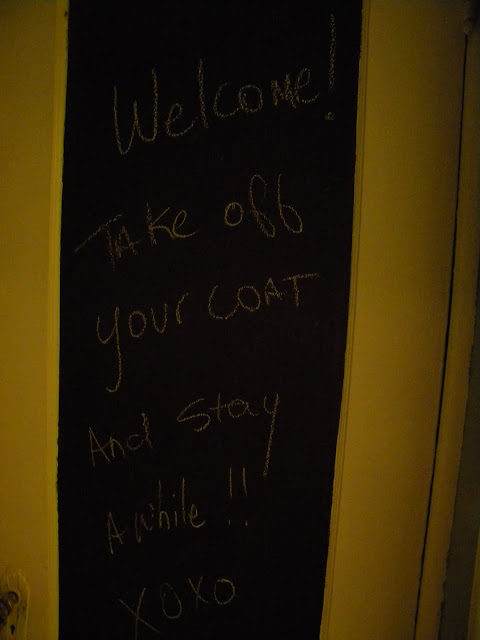 Welcome!
Take off
your COAT
And stay
Awhile!!
XOXO